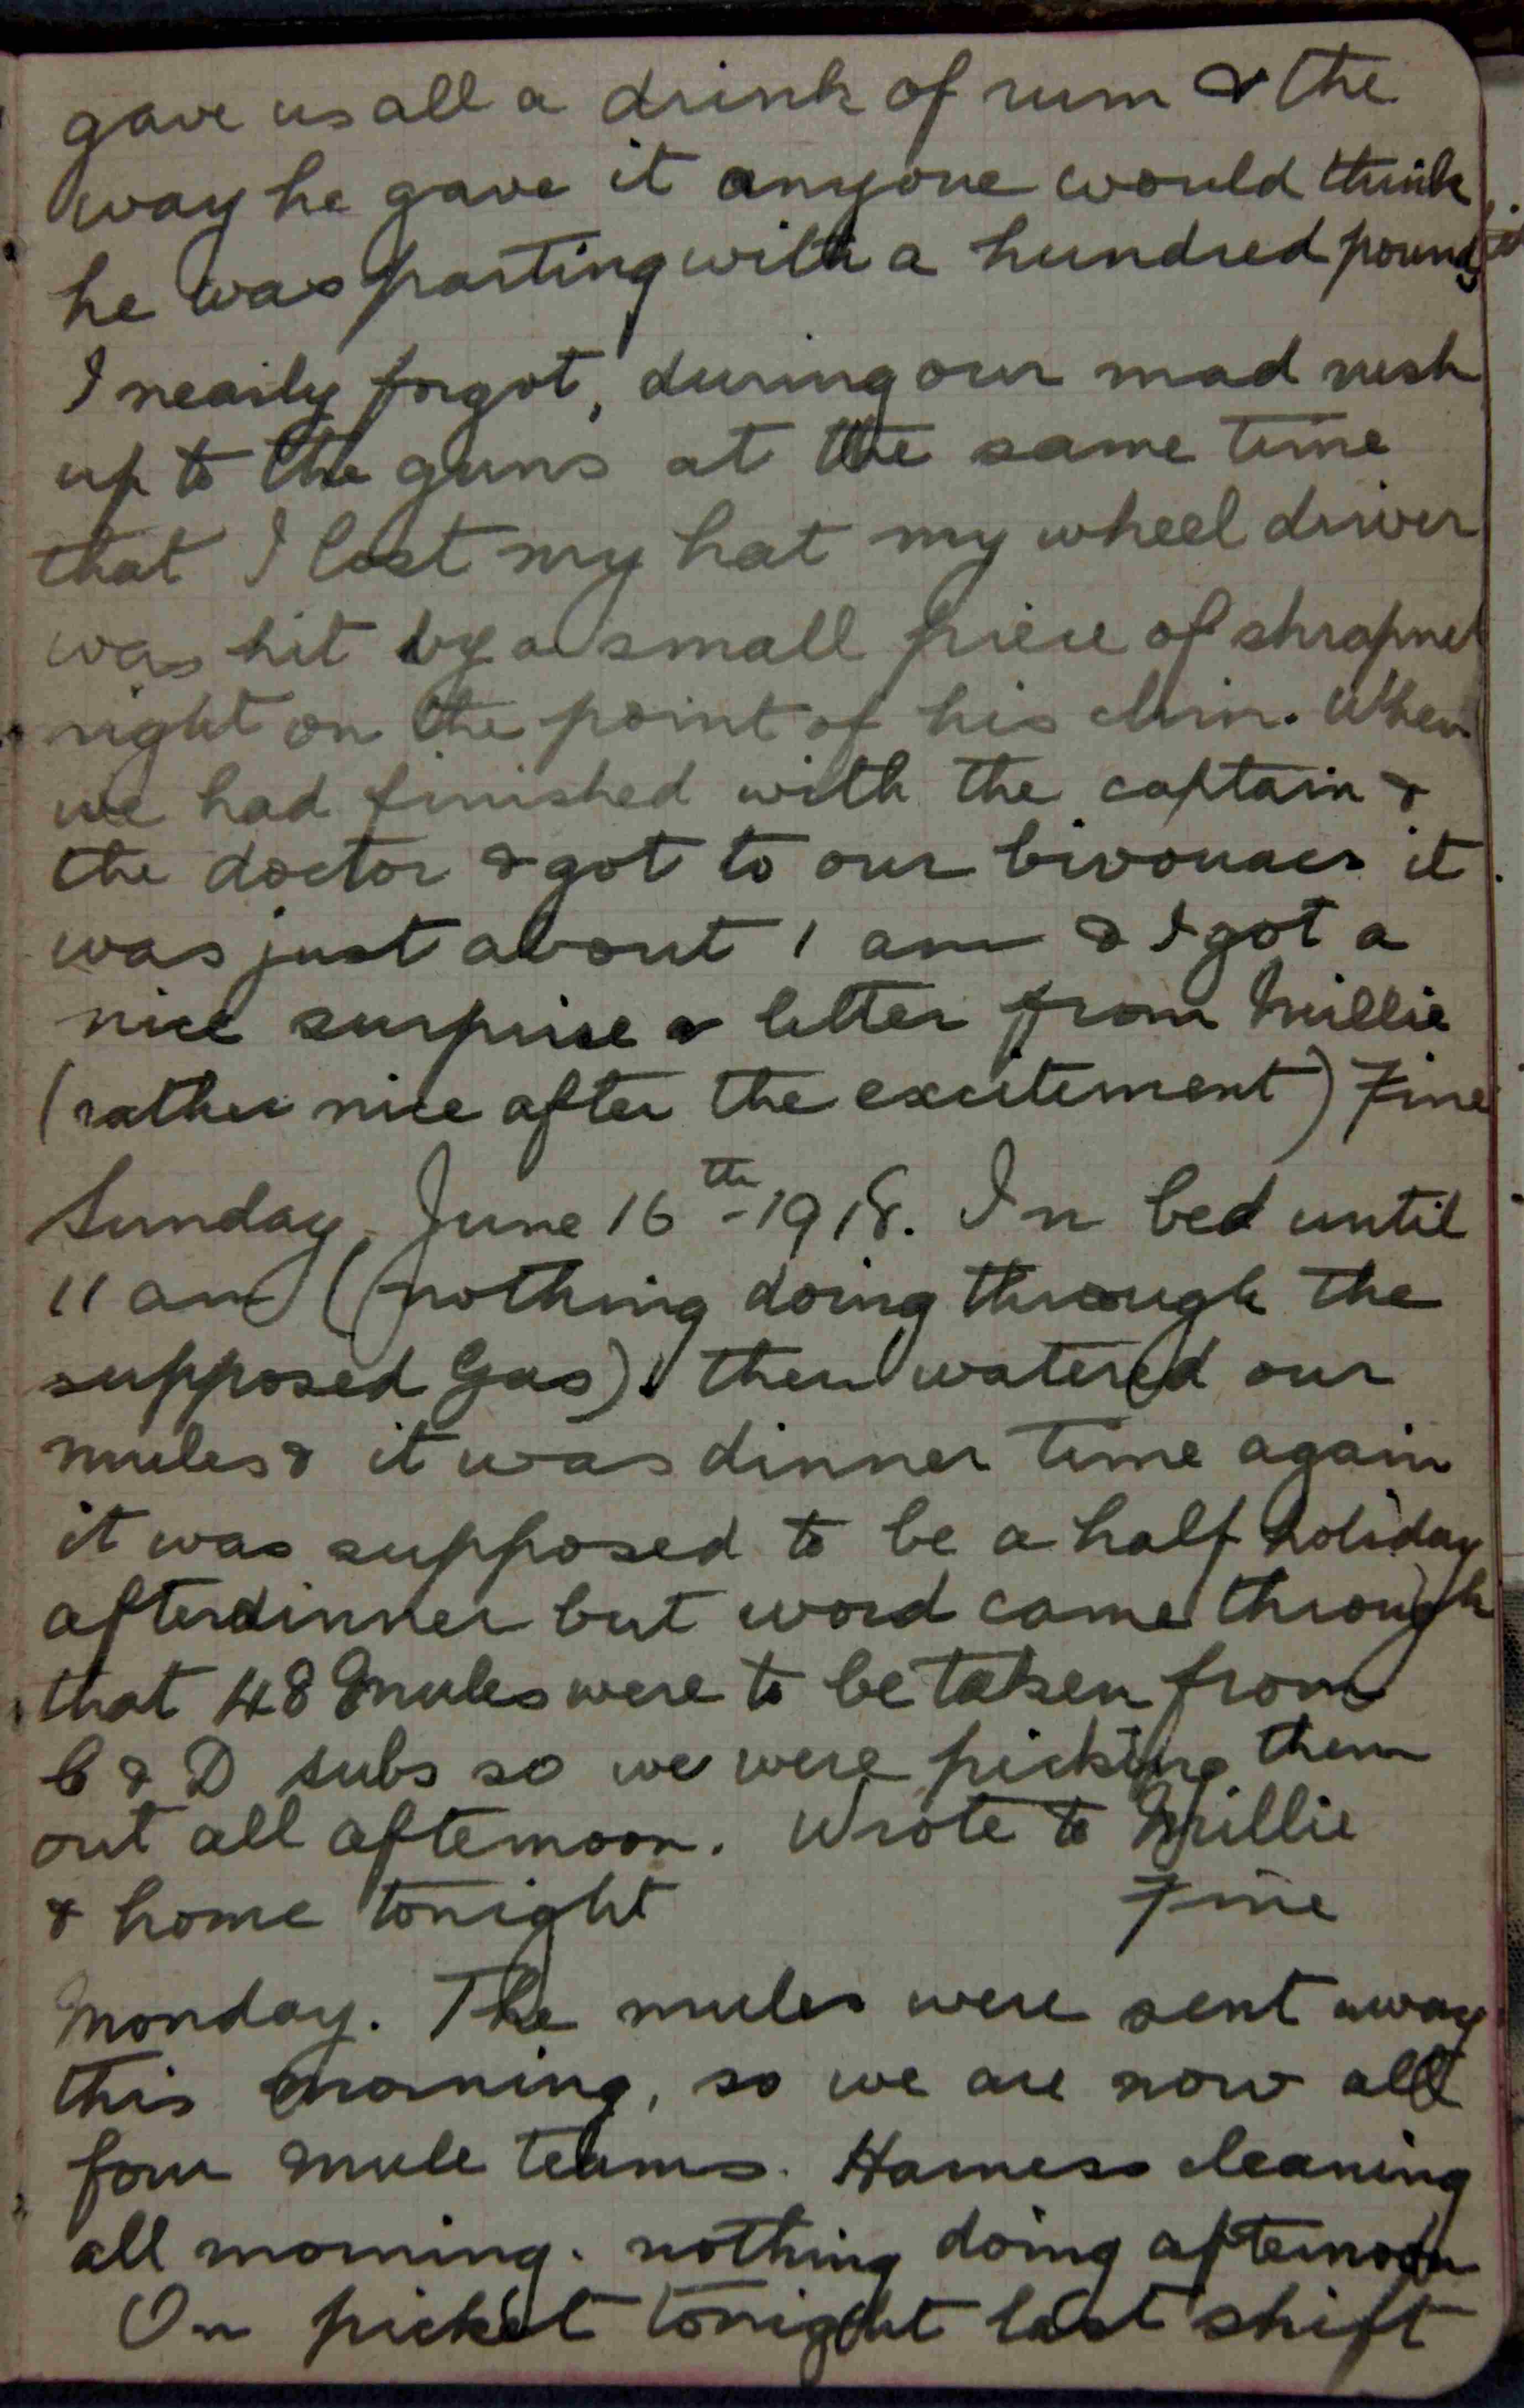 gave us all a drink of rum & the
way he gave it anyone would think
he was parting with a hundred pounds
I nearly forgot, during our mad rush
up to the guns at the same time
that I lost my hat my wheel driver
was hit by a small piece of shrapnel
right on the point of his chin. When
we had finished with the captain &
the doctor & got to our bivouacs it
was just about 1 am & I got a
nice surprise a letter from Millie
(rather nice after the excitement) Fine
Sunday, June 16th-1918. In bed until
11 am (nothing doing through the
supposed Gas). then watered our
mules & it was dinner time again
it was supposed to be a half holiday
after dinner but word came through
that 48 mules were to be taken from
C & D subs so we were picking them
out all afternoon. Wrote to Millie
& home tonight Fine
Monday. The mules were sent away
this morning, so we are now all
four mule teams. Harness cleaning
all morning. nothing doing afternoon
On picket tonight last shift